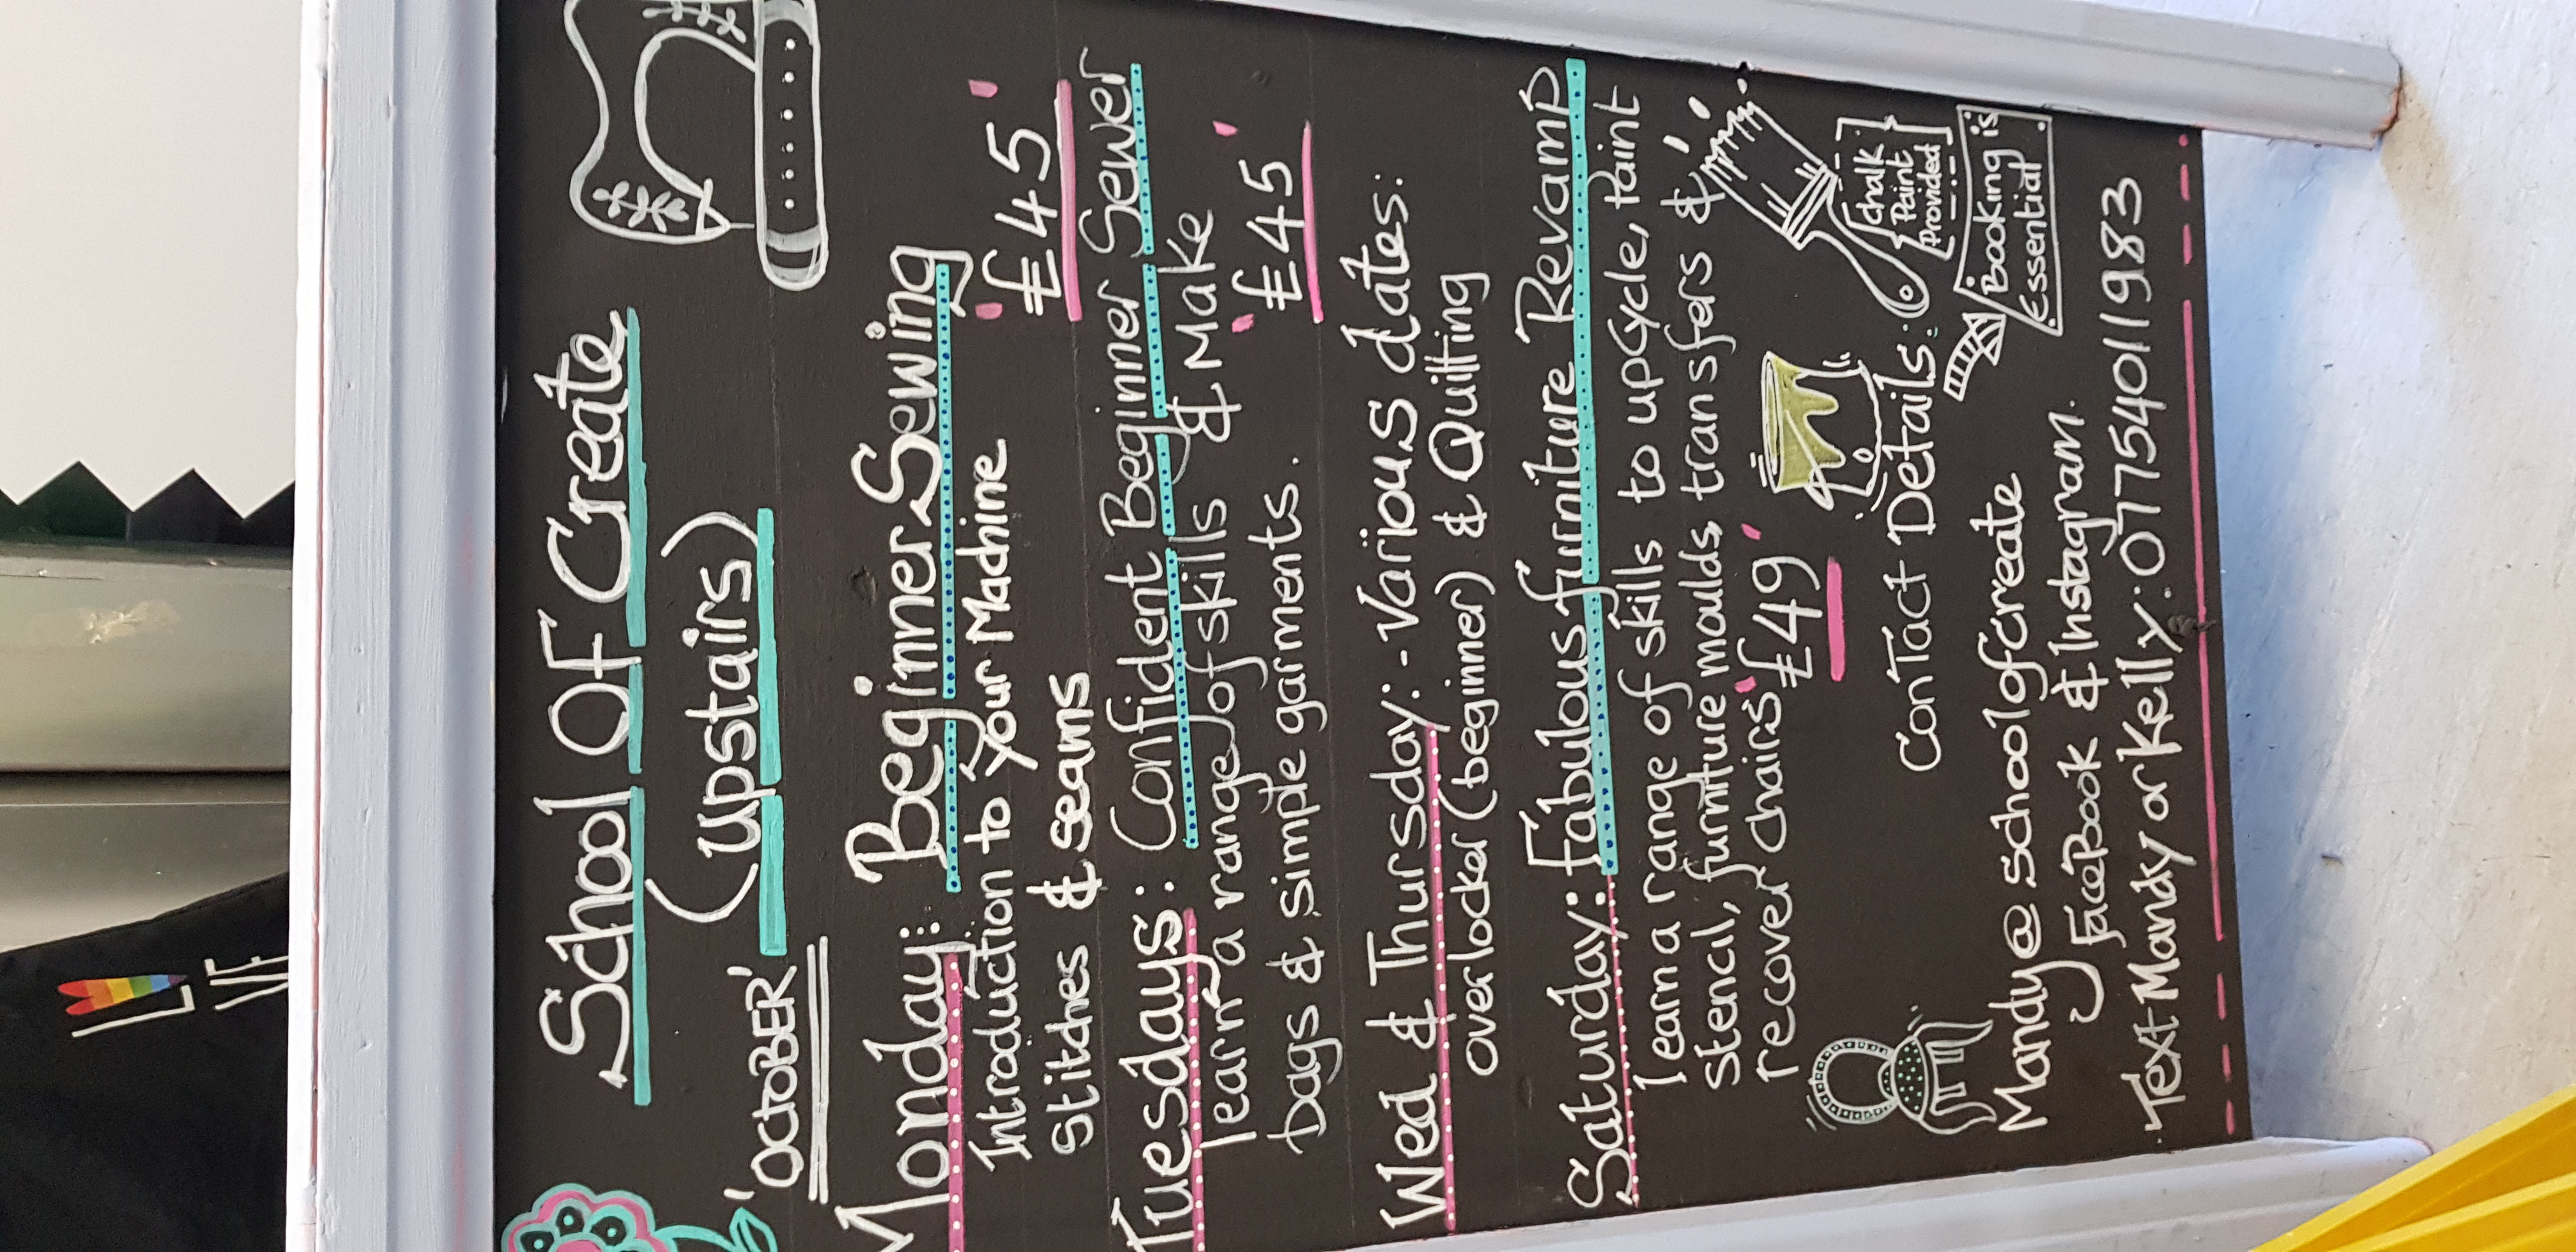 School Of Create
(upstairs)
'OCTOBER'
Monday: Beginner Sewing
Introduction to Your Machine
Stitches & seams £45
Tuesdays: Confident Beginner Sewer
learn a range of skills & Make
bags & simple garments. £45
Wed & Thursday:- Various dates:
overlocker (beginner) & Quilting
Saturday: Fabulous furniture Revamp
learn a range of skills to upcycle, Paint
stencil, furniture moulds transfers &
recover chairs £49
Chalk
Paint
Provided
Contact Details:
Booking is
Essential
Mandy @ schoolofcreate
FaceBook & Instagram.
Text Mandy or Kelly: 07754011983